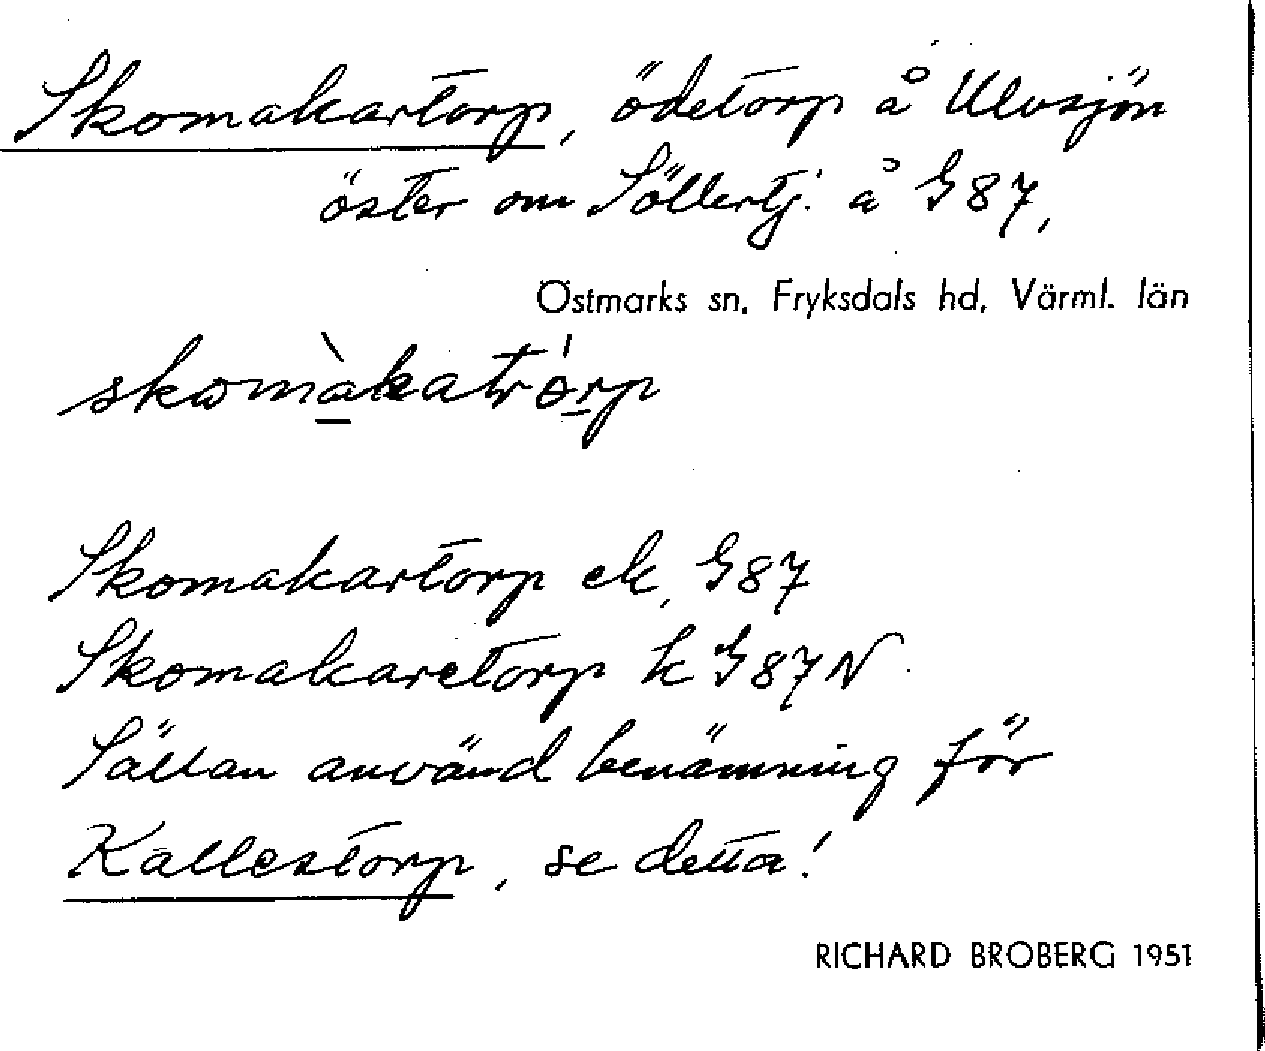 Skomakartorp, ödetorp å Ulvsjön
öster om Söllertj. å G 87,
Östmarks sn, Fryksdals hd, Värml. län
skomàkatrórp
Skomakartorp ek, G87
Skomakaretorp k G87N
Sällan använd benämning för
Kallestorp, se detta!
RICHARD BROBERG 1951